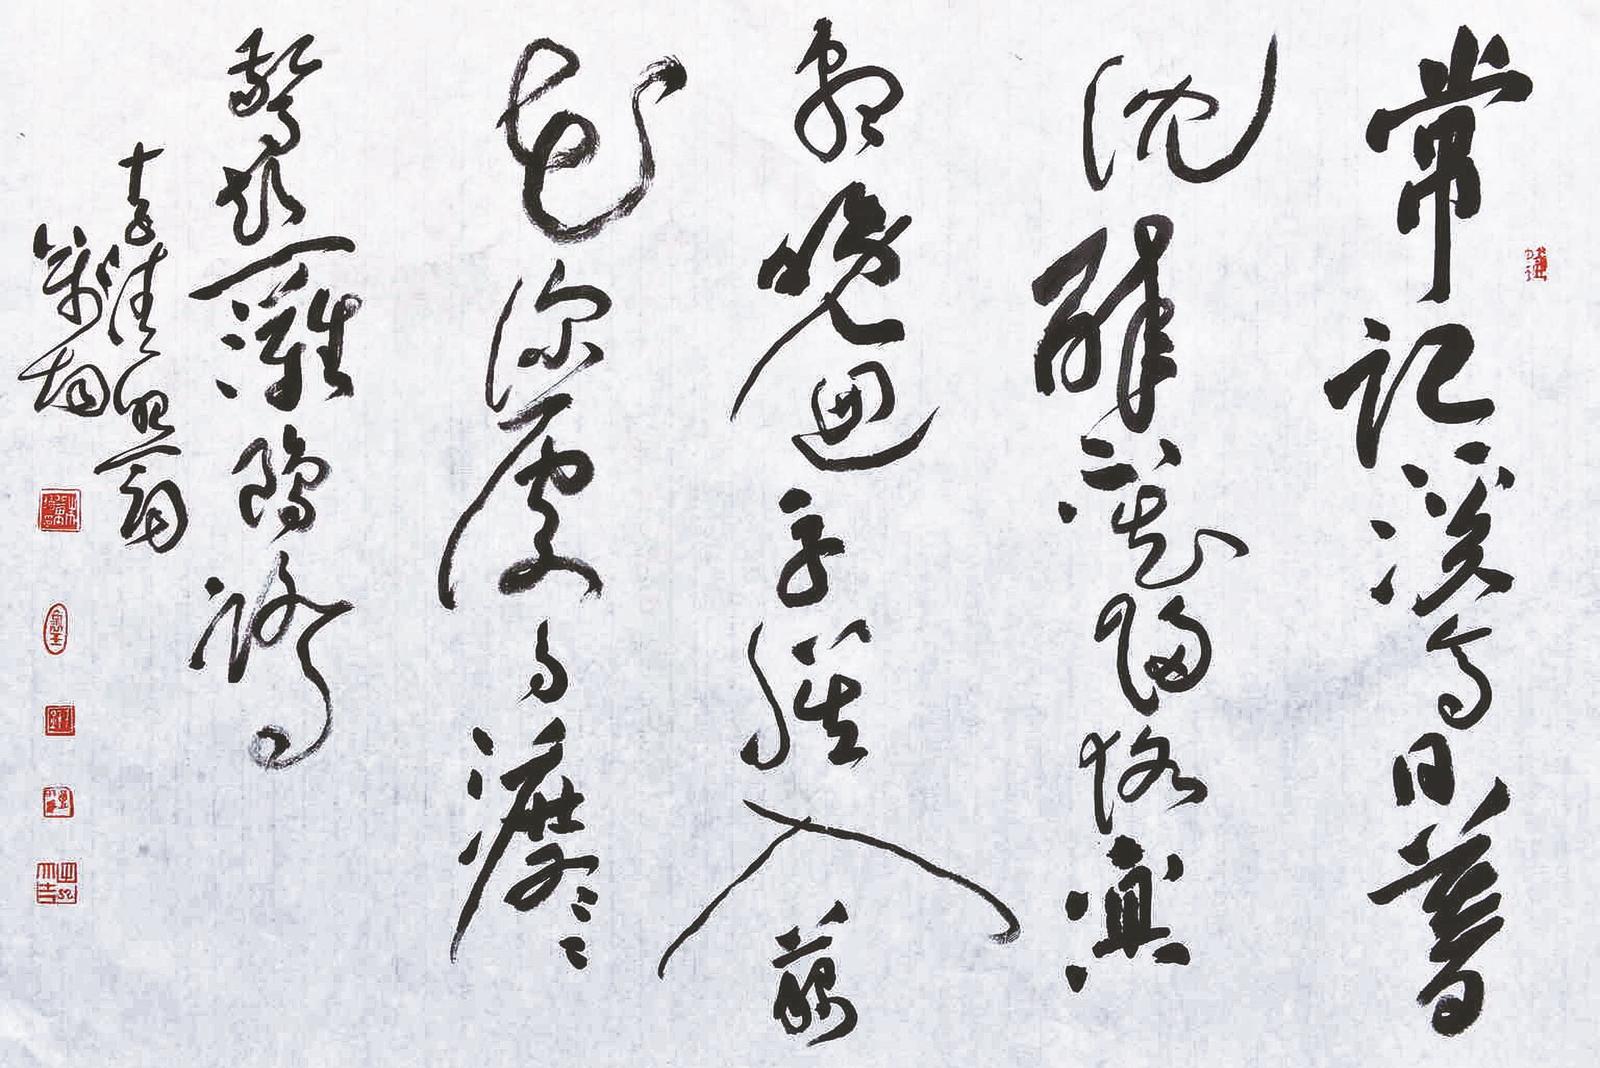 常記溪亭日暮
沈醉不知歸路興
盡晚迴舟誤入藕
花深處爭渡々々
驚起一灘鷗鷺
李清照詞